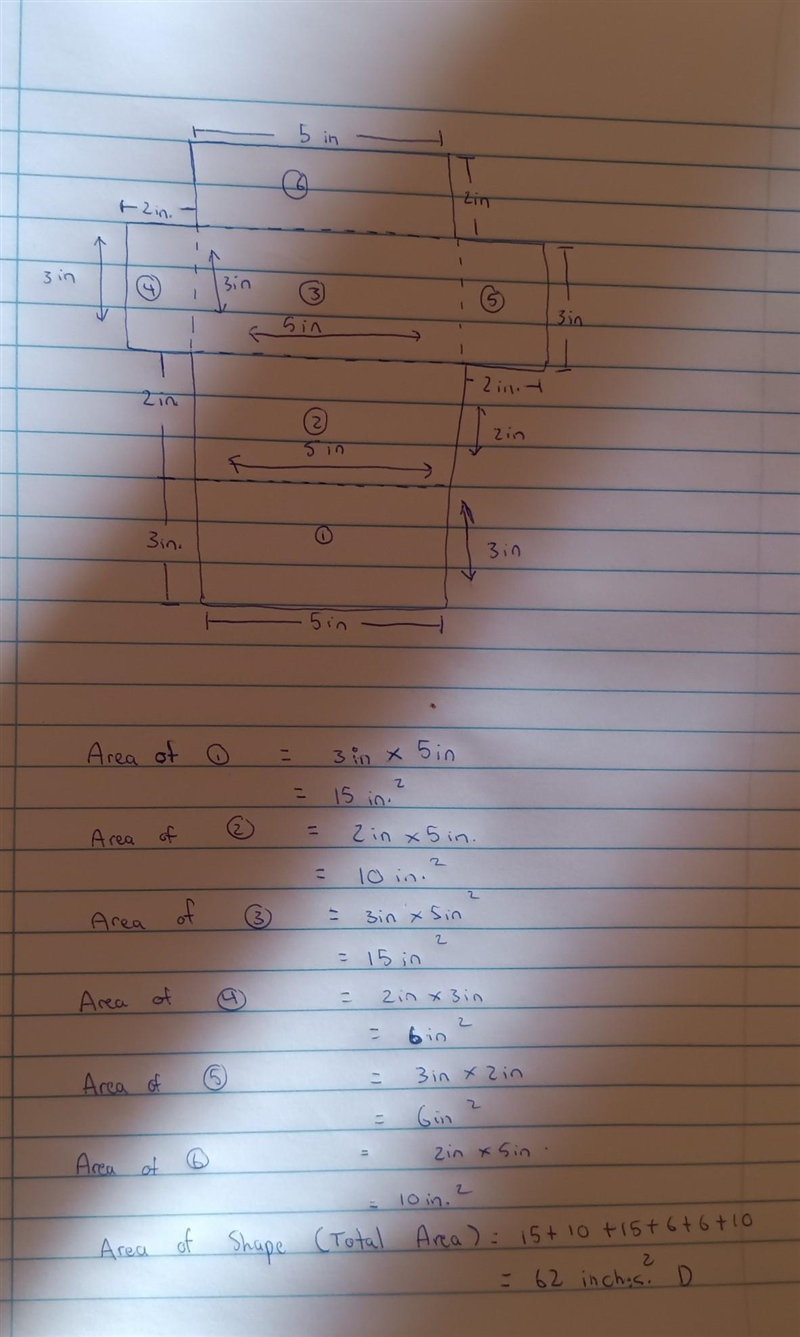 5 in
⑥
2in
2in.
3in
④
3in
③
⑤
5in
3in
2in
2in.
②
5 in
2in
3in.
①
3in
5in
Area of ① = 3in × 5in
= 15 in.²
Area of ② = 2in × 5in.
= 10 in.²
Area of ③ = 3in × 5in²
= 15 in²
Area of ④ = 2in × 3in
= 6in²
Area of ⑤ = 3in × 2in
= 6in²
Area of ⑥ = 2in × 5in.
= 10in.²
Area of Shape (Total Area) = 15+ 10 +15+6+6+10
= 62 inches.² D